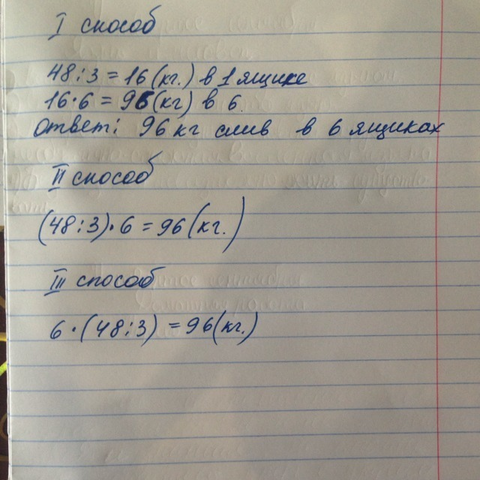 I способ
48:3=16(кг.) в 1 ящике
16·6=96(кг) в 6.
Ответ: 96 кг слив в 6 ящиках
II способ
(48:3)·6=96(кг.)
III способ
6·(48:3)=96(кг.)